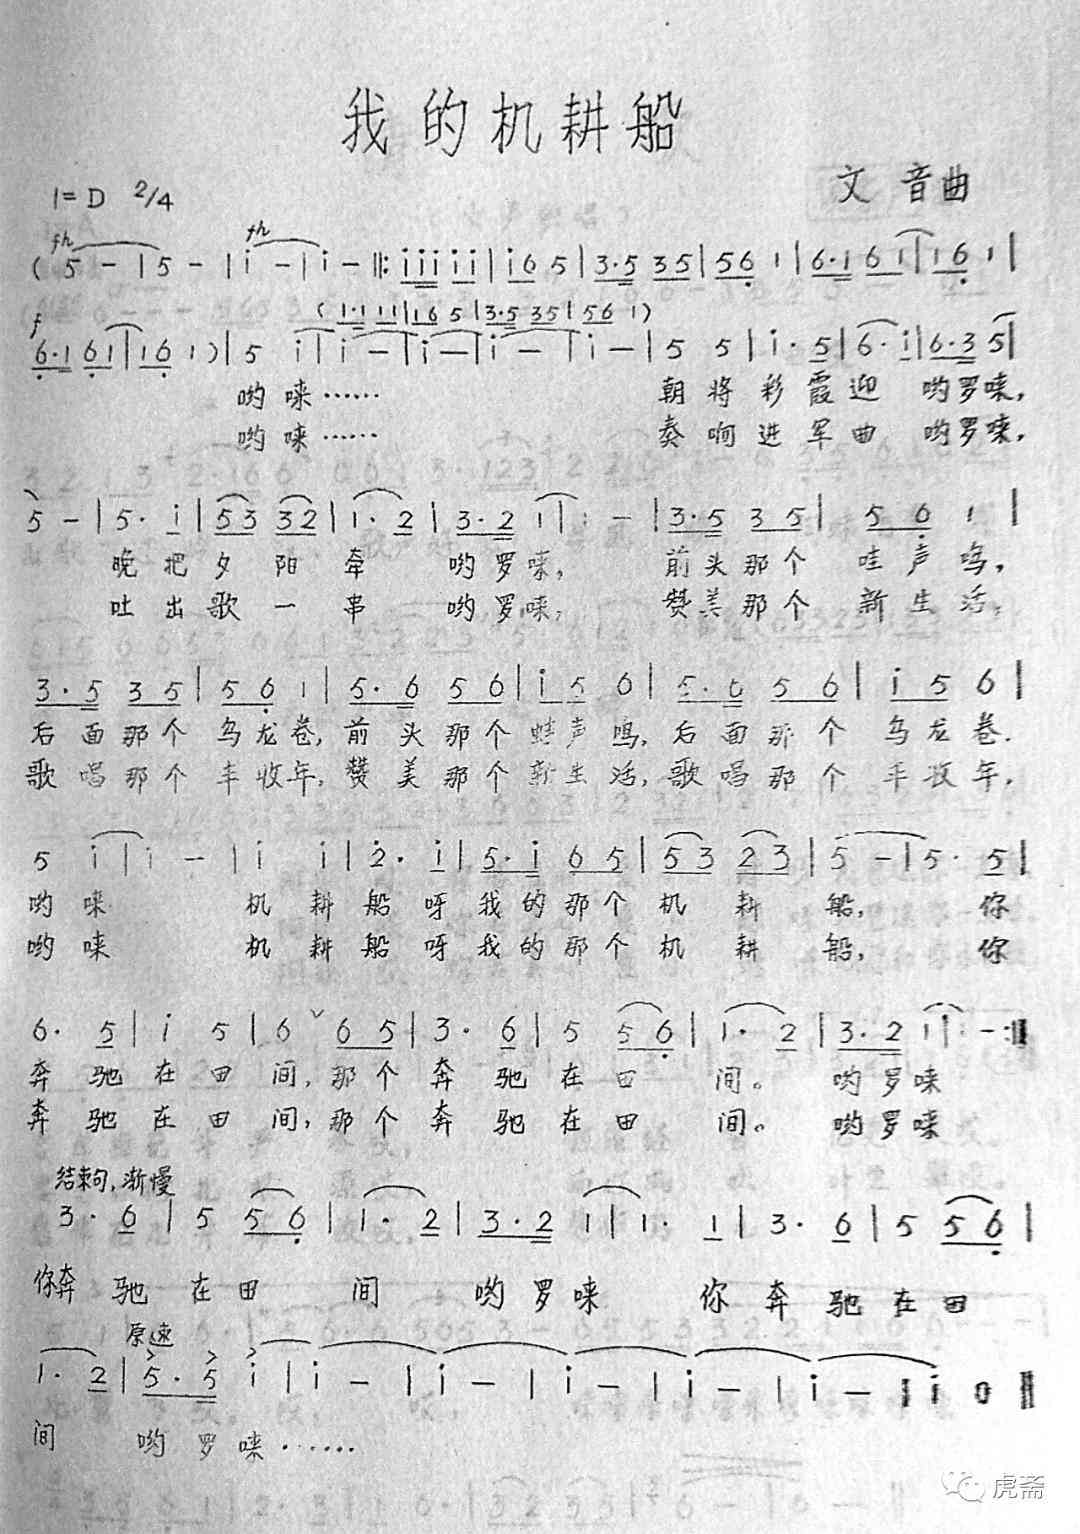 我的机耕船
1=D 2/4
文音曲
fh fh
( 5 - | 5 - | i - | i - ‖: i i i i i | i 6 5 | 3·5 3 5 | 5 6 1 | 6·1 6 1 | 1 6 1 |
f ( 1·1 1 1 | 1 6 5 | 3·5 3 5 | 5 6 1 )
6·1 6 1 | 1 6 1 ) | 5 i | i - | i - | i - | i - | 5 5 | i· 5 | 6· i | 6·3 5 |
哟 唻…… 朝将彩霞迎 哟罗唻,
哟 唻…… 奏响进军曲 哟罗唻,
5 - | 5· i | 5 3 3 2 | 1· 2 | 3·2 1 | 1 - | 3·5 3 5 | 5 6 1 |
晚把夕阳牵 哟罗唻, 前头那个哇声鸣,
吐出歌一串 哟罗唻, 赞美那个新生活,
3·5 3 5 | 5 6 1 | 5·6 5 6 | i 5 6 | 5·6 5 6 | i 5 6 |
后面那个乌龙卷,前头那个蛙声鸣,后面那个乌龙卷.
歌唱那个丰收年,赞美那个新生活,歌唱那个丰收年.
5 i | i - | i i | 2· i | 5·i 6 5 | 5 3 2 3 | 5 - | 5· 5 |
哟唻 机耕船呀我的那个机耕船, 你
哟唻 机耕船呀我的那个机耕船, 你
6· 5 | i 5 | 6 ˇ 6 5 | 3· 6 | 5 5 6 | 1· 2 | 3·2 1 | 1 - :‖
奔驰在田间,那个奔驰在田间。哟罗唻
奔驰在田间,那个奔驰在田间。哟罗唻
结束句,渐慢
3· 6 | 5 5 6 | 1· 2 | 3·2 1 | 1· 1 | 3· 6 | 5 5 6 |
你奔驰在田间 哟罗唻 你奔驰在田
原速
1· 2 | 5·5 i | i - | i - | i - | i - | i - | i 0 ‖
间 哟罗唻……
虎斋